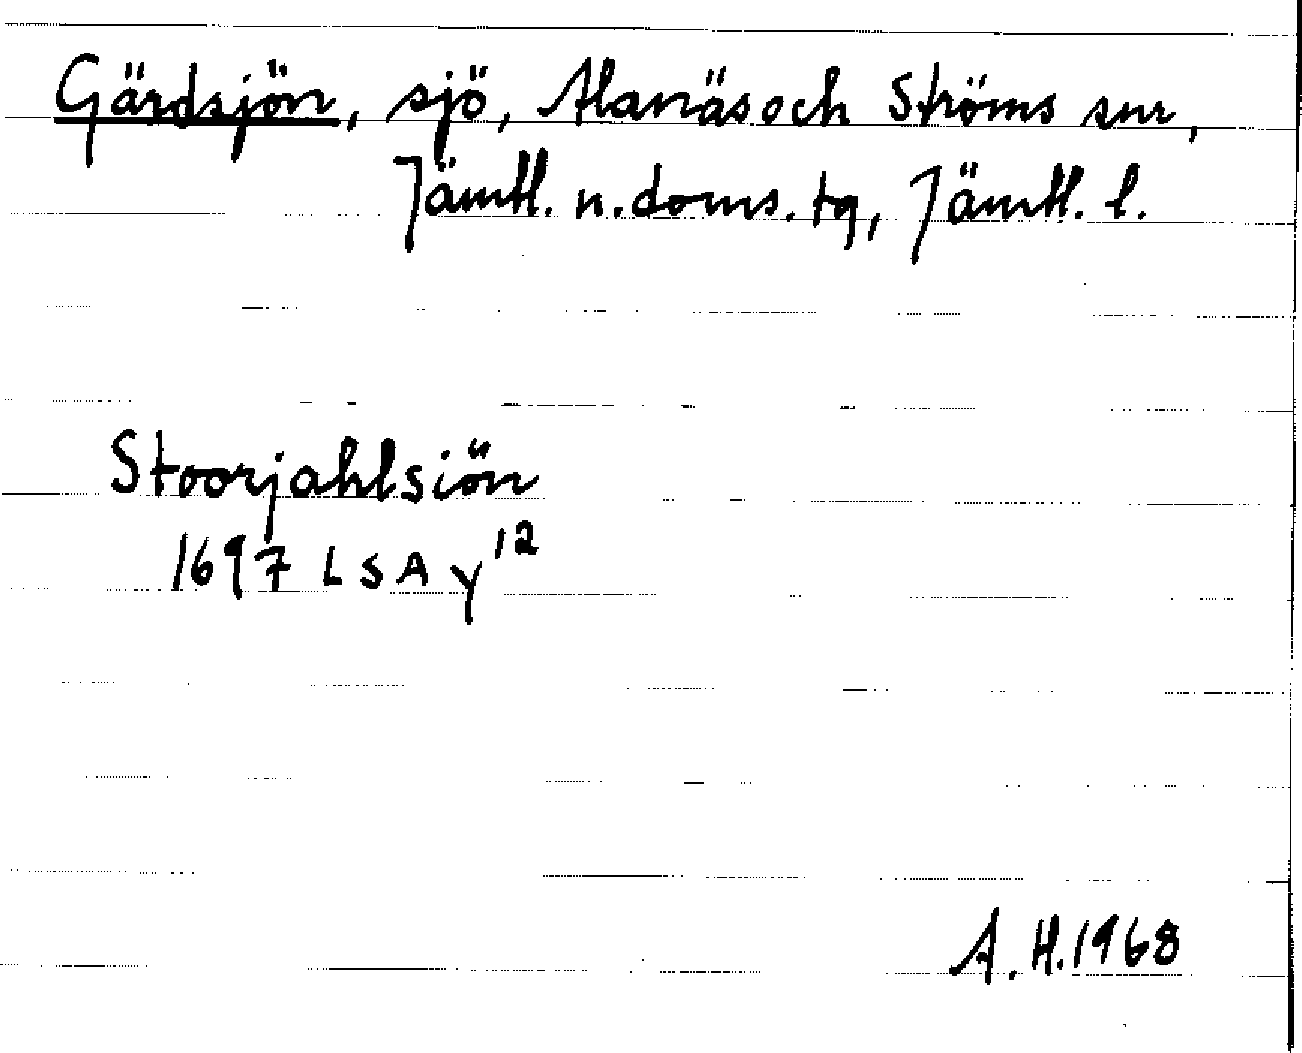 Gärdsjön, sjö, Alanäs och Ströms snr,
Jämtl. n. doms. tg, Jämtl. l.
Stoorjahlsiön
1697 LSA Y¹²
A. H. 1968